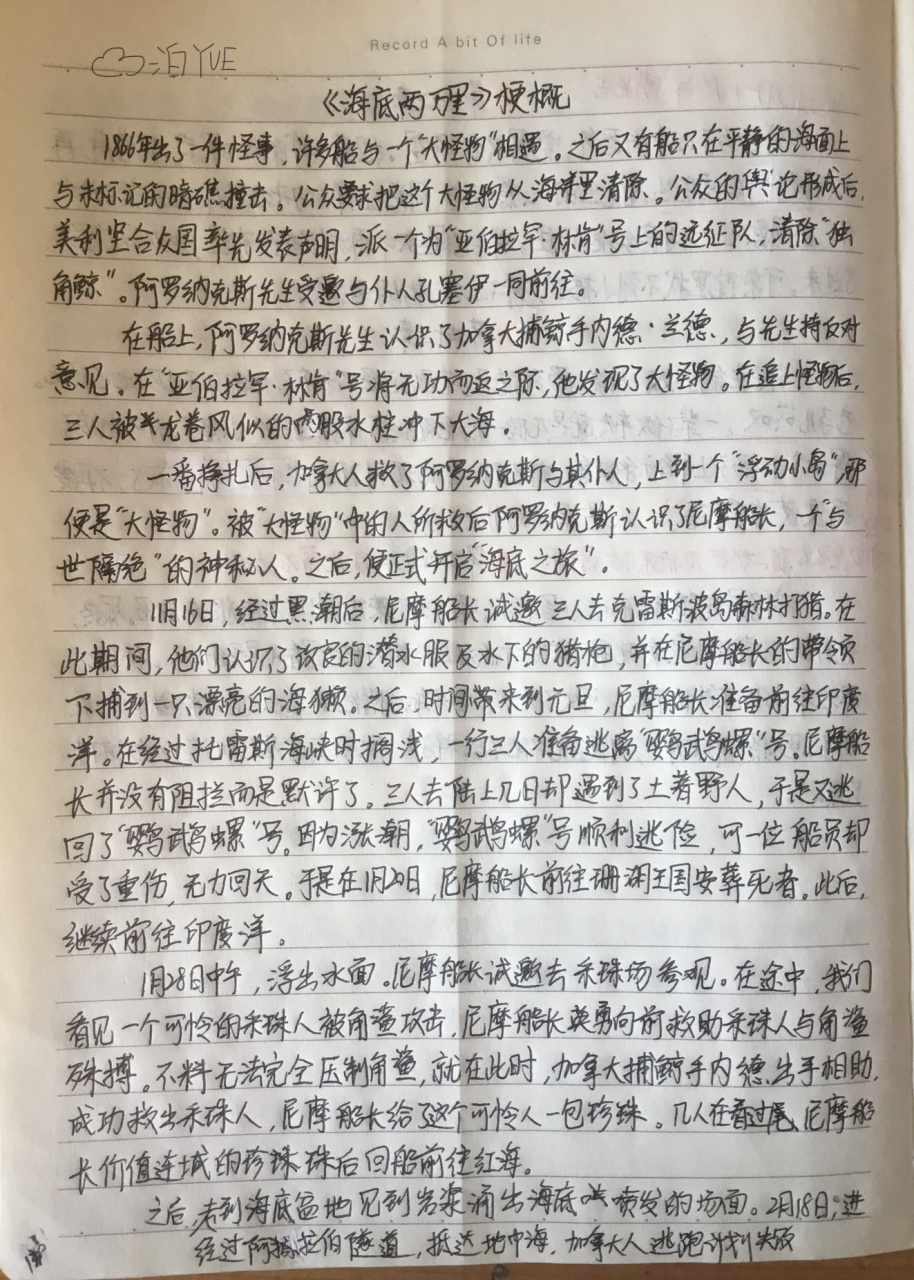 Record A bit Of life
泊YUE
《海底两万里》梗概
1866年出了一件怪事，许多船与一个"大怪物"相遇。之后又有船只在平静的海面上
与未标记的暗礁撞击。公众要求把这个大怪物从海洋里清除。公众的舆论形成后，
美利坚合众国率先发表声明，派一个为"亚伯拉罕·林肯"号上的远征队，清除"独
角鲸"。阿罗纳克斯先生受邀与仆人孔塞伊一同前往。
在船上，阿罗纳克斯先生认识了加拿大捕鲸手内德·兰德，与先生持反对
意见。在"亚伯拉罕·林肯"号将无功而返之际，他发现了大怪物。在追上怪物后，
三人被龙卷风似的两股水柱冲下大海。
一番挣扎后，加拿大人救了阿罗纳克斯与其仆人，上到一个"浮动小岛"，那
便是"大怪物"。被"大怪物"中的人所救后阿罗纳克斯认识了尼摩船长，一个"与
世隔绝"的神秘人。之后，便正式开启"海底之旅"。
11月16日，经过黑潮后，尼摩船长诚邀三人去克雷斯波岛森林打猎。在
此期间，他们认识了改良的潜水服及水下的猎枪，并在尼摩船长的带领
下捕到一只漂亮的海獭。之后，时间带来到元旦，尼摩船长准备前往印度
洋。在经过托雷斯海峡时搁浅，一行三人准备逃离"鹦鹉螺"号。尼摩船
长并没有阻拦而是默许了。三人去陆上几日却遇到了土著野人，于是又逃
回了"鹦鹉螺"号。因为涨潮，"鹦鹉螺"号顺利逃险，可一位船员却
受了重伤，无力回天。于是在1月20日，尼摩船长前往珊瑚王国安葬死者。此后，
继续前往印度洋。
1月28日中午，浮出水面。尼摩船长诚邀去采珠场参观。在途中，我们
看见一个可怜的采珠人被角鲨攻击，尼摩船长英勇向前救助采珠人与角鲨
殊搏。不料无法完全压制角鲨，就在此时，加拿大捕鲸手内德出手相助，
成功救出采珠人，尼摩船长给了这个可怜人一包珍珠。几人在看过尼摩船
长价值连城的珍珠后回船前往红海。
之后，来到海底盆地见到岩浆涌出海底喷发的场面。2月18日，进
经过阿拉伯隧道，抵达地中海，加拿大人逃跑计划失败